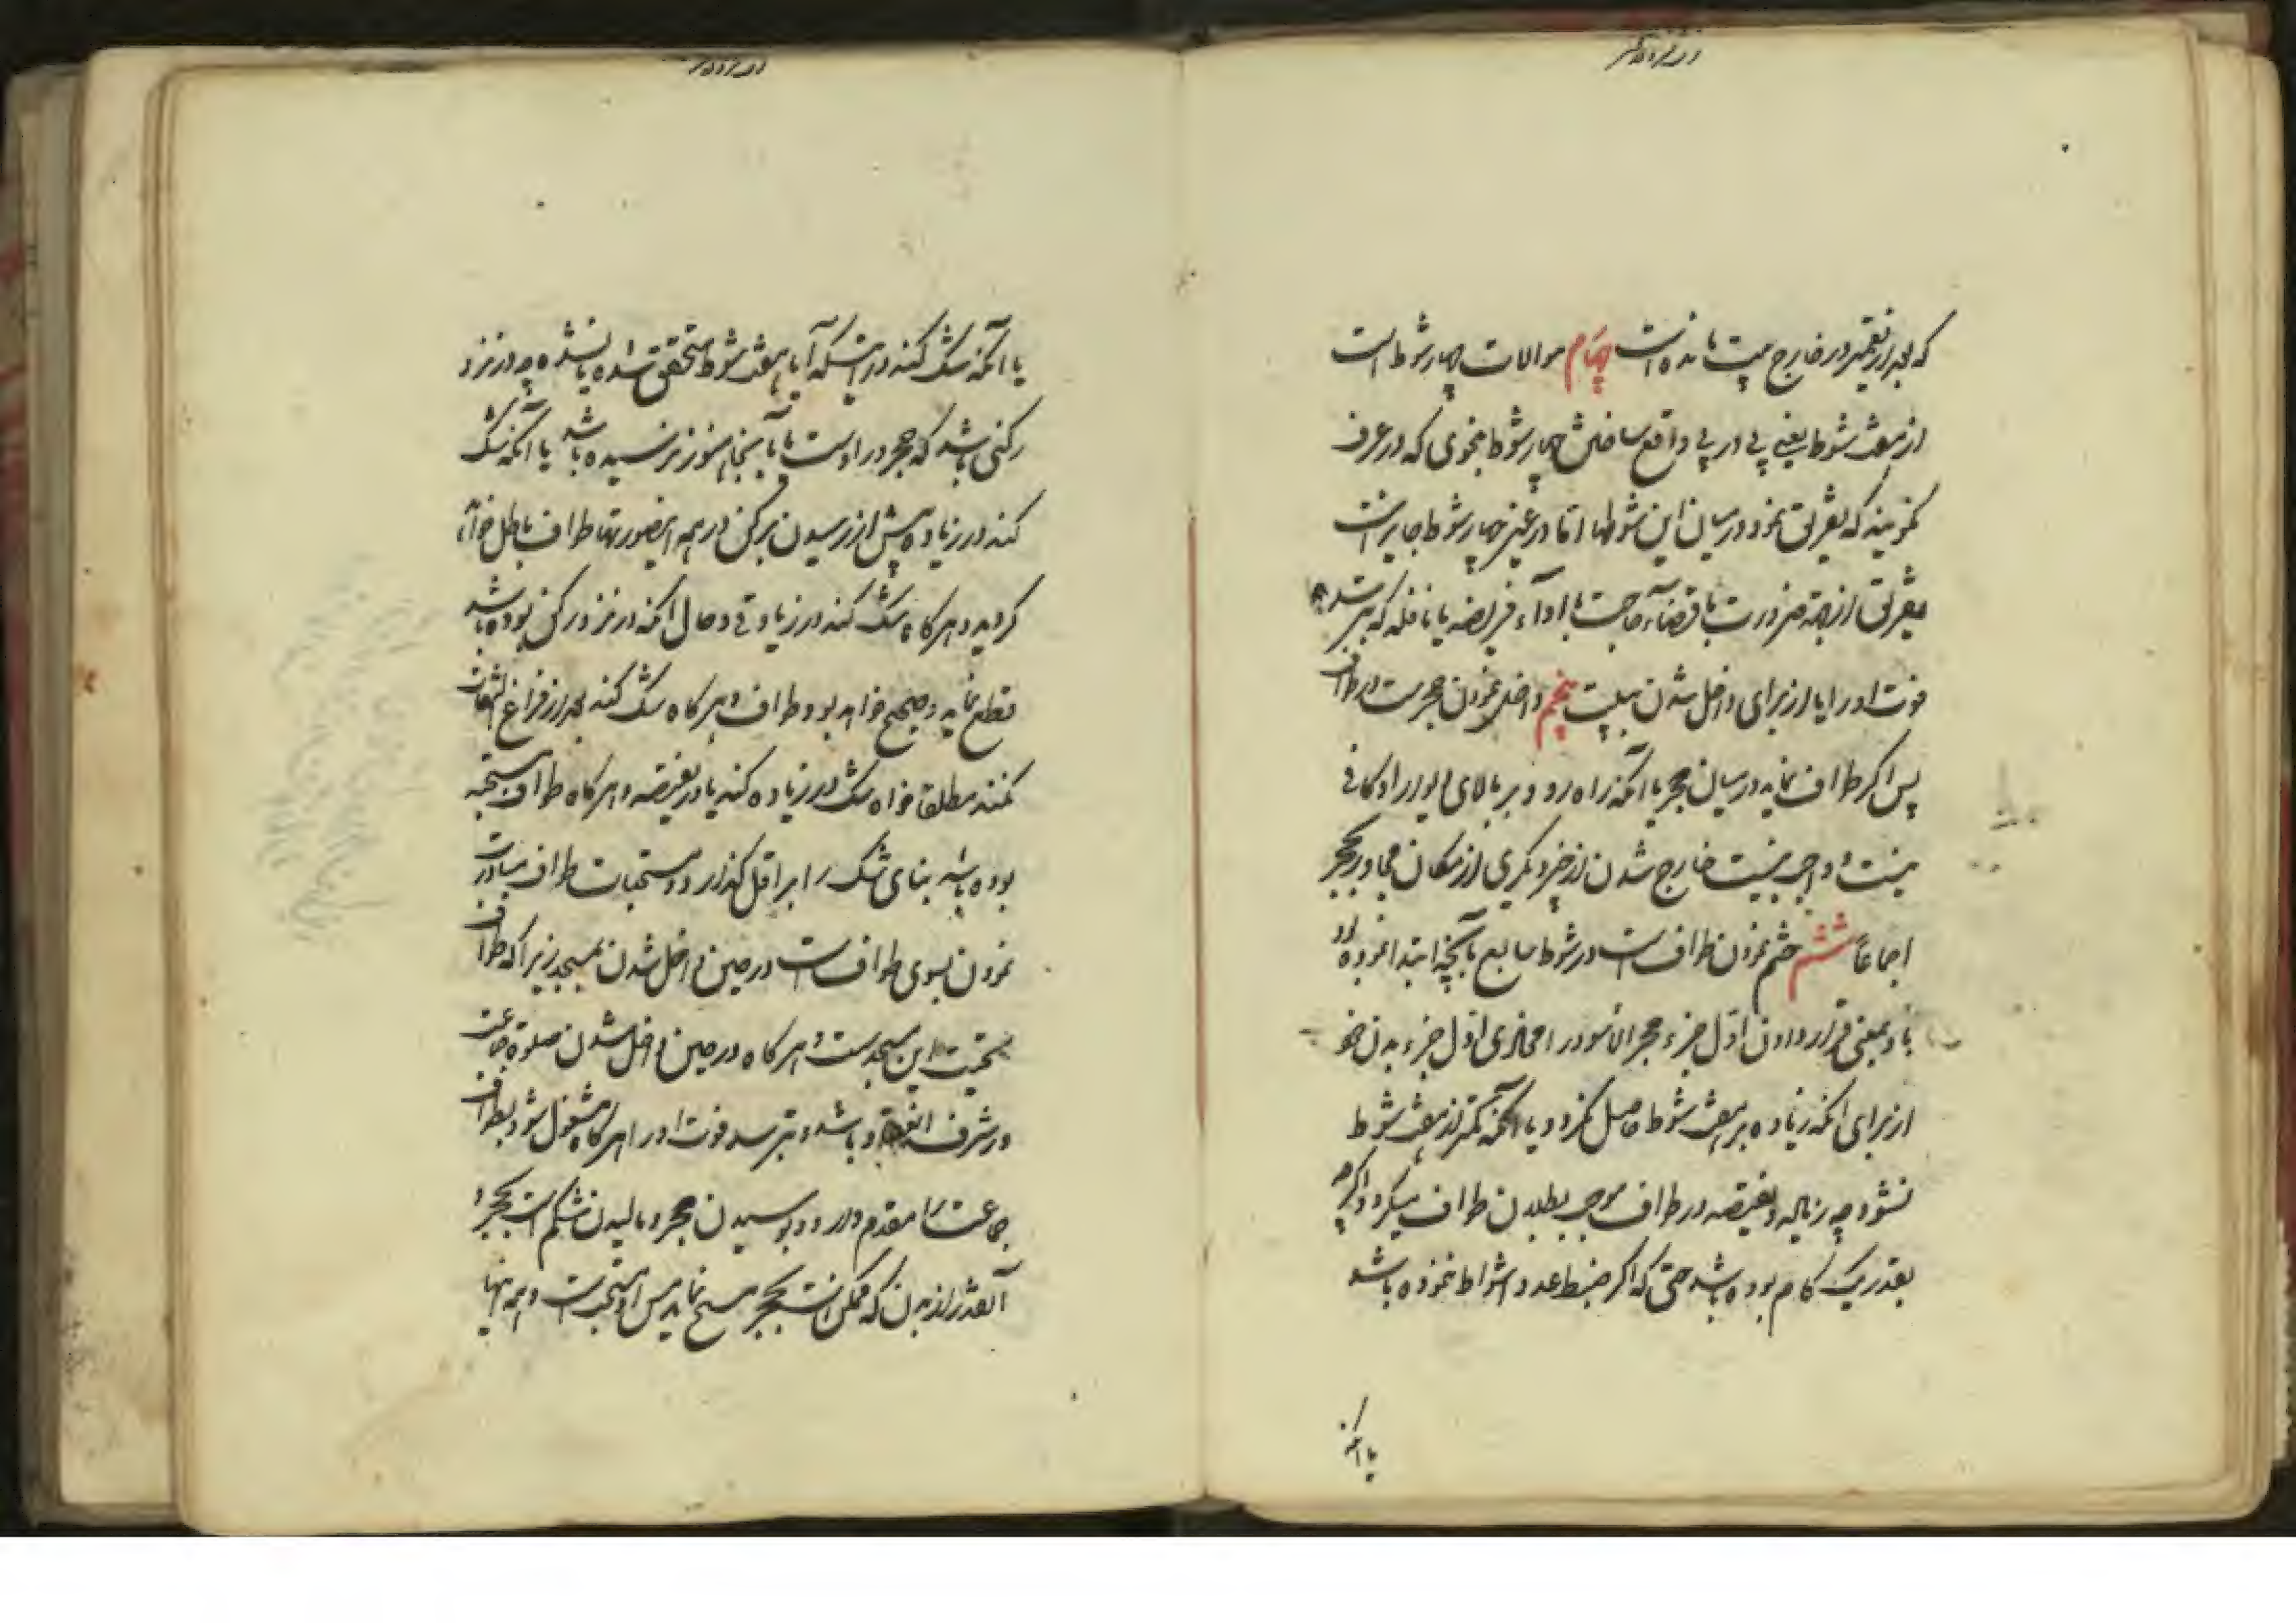 که بعد از تعمیر در خارج بیت مانده است چهارم موالات چهار شوط است
از هفت شوط یعنی پی در پی واقع ساختن چهار شوط بنحوی که در عرف
نگویند که تفریق نمود در میان این شوطها اما در غیر چهار شوط جایز است
تفریق از جهة ضرورت یا قضاء حاجت یا اداء فریضه یا نافله که بترسد
فوت او را یا از برای داخل شدن ببیت پنجم داخل نمودن حجرست در طواف
پس اگر طواف نماید در میان حجر یا آنکه راه رود بر بالای دیوار او کافی
نیست و واجب نیست خارج شدن از چیز دیگری از مکان مجاور حجر
اجماعا ششم ختم نمودن طواف است در شوط سابع بآنچه ابتدا نموده بود
باو بمعنی قرار دادن اول جزء حجر الاسود را محاذی اول جزء بدن خود
از برای آنکه زیاده بر هفت شوط حاصل نگردد یا آنکه کمتر از هفت شوط
نشود چه زیاده و نقیصه در طواف موجب بطلان طواف میگردد اگرچه
بقدر یک گام بوده باشد حتی که اگر ضبط عدد اشواط نموده باشد
یا آنکه
یا آنکه شک کند در اینکه آیا هفت شوط متحقق شده یا نشده چه در نزد
رکنی باشد که حجر در اوست یا بآنجا هنوز نرسیده باشد یا آنکه شک
کند در زیاده پیش از رسیدن برکن در همه اینصورتها طواف باطل خواهد
گردید و هرگاه شک کند در زیادتی و حال آنکه در نزد رکن بوده باشد
قطع نماید و صحیح خواهد بود طواف و هرگاه شک کند بعد از فراغ التفات
نکند مطلقا خواه شک در زیاده کند یا در نقیصه و هرگاه طواف مستحبه
بوده باشد بنای شک را بر اقل گذارد و مستحبات طواف مبادرت
نمودن بسوی طواف است در حین داخل شدن بمسجد زیرا که طواف
تحیت این مسجدست و هرگاه در حین داخل شدن صلوة جماعت
در شرف انعقاد باشد و بترسد فوت او را هرگاه مشغول شود بطواف
جماعت را مقدم دارد و بوسیدن حجر و مالیدن شکم است بحجر و
آنقدر از بدن که ممکن است بحجر مسح نماید پس او مستحب است و همه اینها